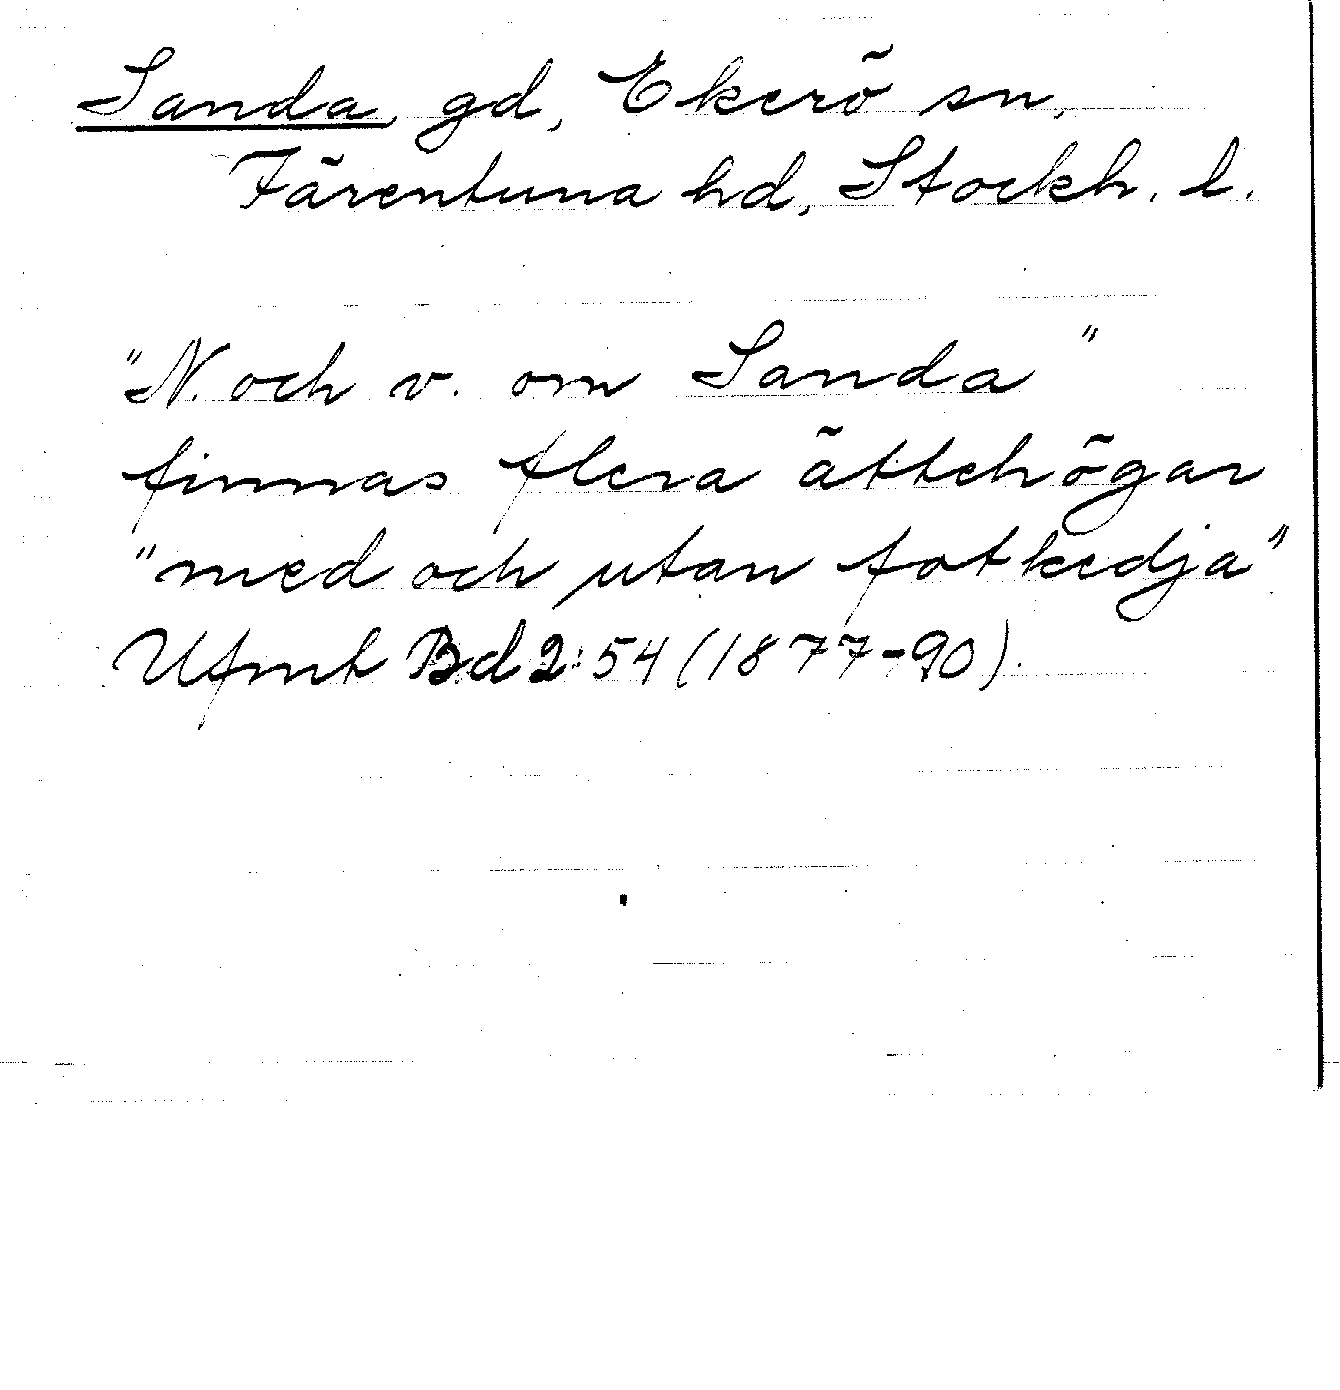 Sanda, gd, Ekerö sn,
Färentuna hd, Stockh. l.
"N. och v. om Sanda"
finnas flera ättehögar
"med och utan fotkedja"
Ufmt Bd 2:54 (1877-90).